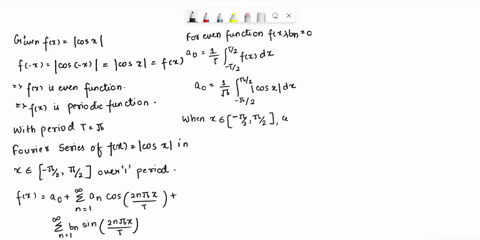 Given f(x) = |cos x|
f(-x) = |cos(-x)| = |cos x| = f(x)
=> f(x) is even function.
=> f(x) is periodic function.
With period T = π
Fourier Series of f(x) = |cos x| in
x ∈ [-π/2, π/2] over '1' period.
f(x) = a0 + ∑_{n=1}^{∞} an cos(2nπx/T) +
∑_{n=1}^{∞} bn sin(2nπx/T)
For even function f(x), bn = 0
a0 = 1/T ∫_{-T/2}^{T/2} f(x) dx
a0 = 1/π ∫_{-π/2}^{π/2} |cos x| dx
When x ∈ [-π/2, π/2], c